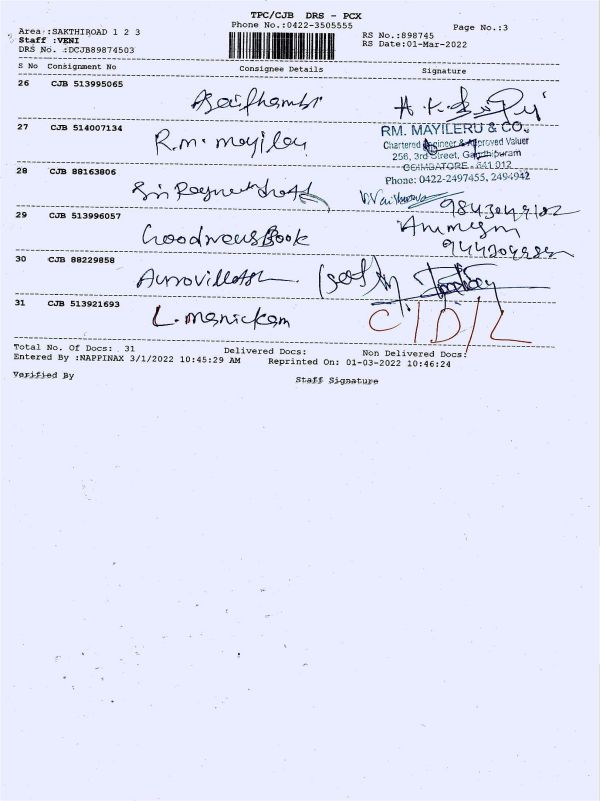 TPC/CJB DRS - PCX
Phone No.:0422-3505555
Page No.:3
Area :SAKTHIROAD 1 2 3
Staff :VENI
DRS No. :DCJB89874503
RS No.:898745
RS Date:01-Mar-2022
S No Consignment No Consignee Details Signature
26 CJB 513995065
27 CJB 514007134 R.M. Mayiler
RM. MAYILERU & CO.,
Chartered Engineer & Approved Valuer
256, 3rd Street, Gandhipuram
COIMBATORE - 641 012
Phone: 0422-2497455, 2494942
28 CJB 88163806
29 CJB 513996057 Goodnews Book
30 CJB 88229858
31 CJB 513921693 L. manickam C/D/L
Total No. Of Docs: 31 Delivered Docs: Non Delivered Docs:
Entered By :NAPPINAX 3/1/2022 10:45:29 AM Reprinted On: 01-03-2022 10:46:24
Verified By Staff Signature